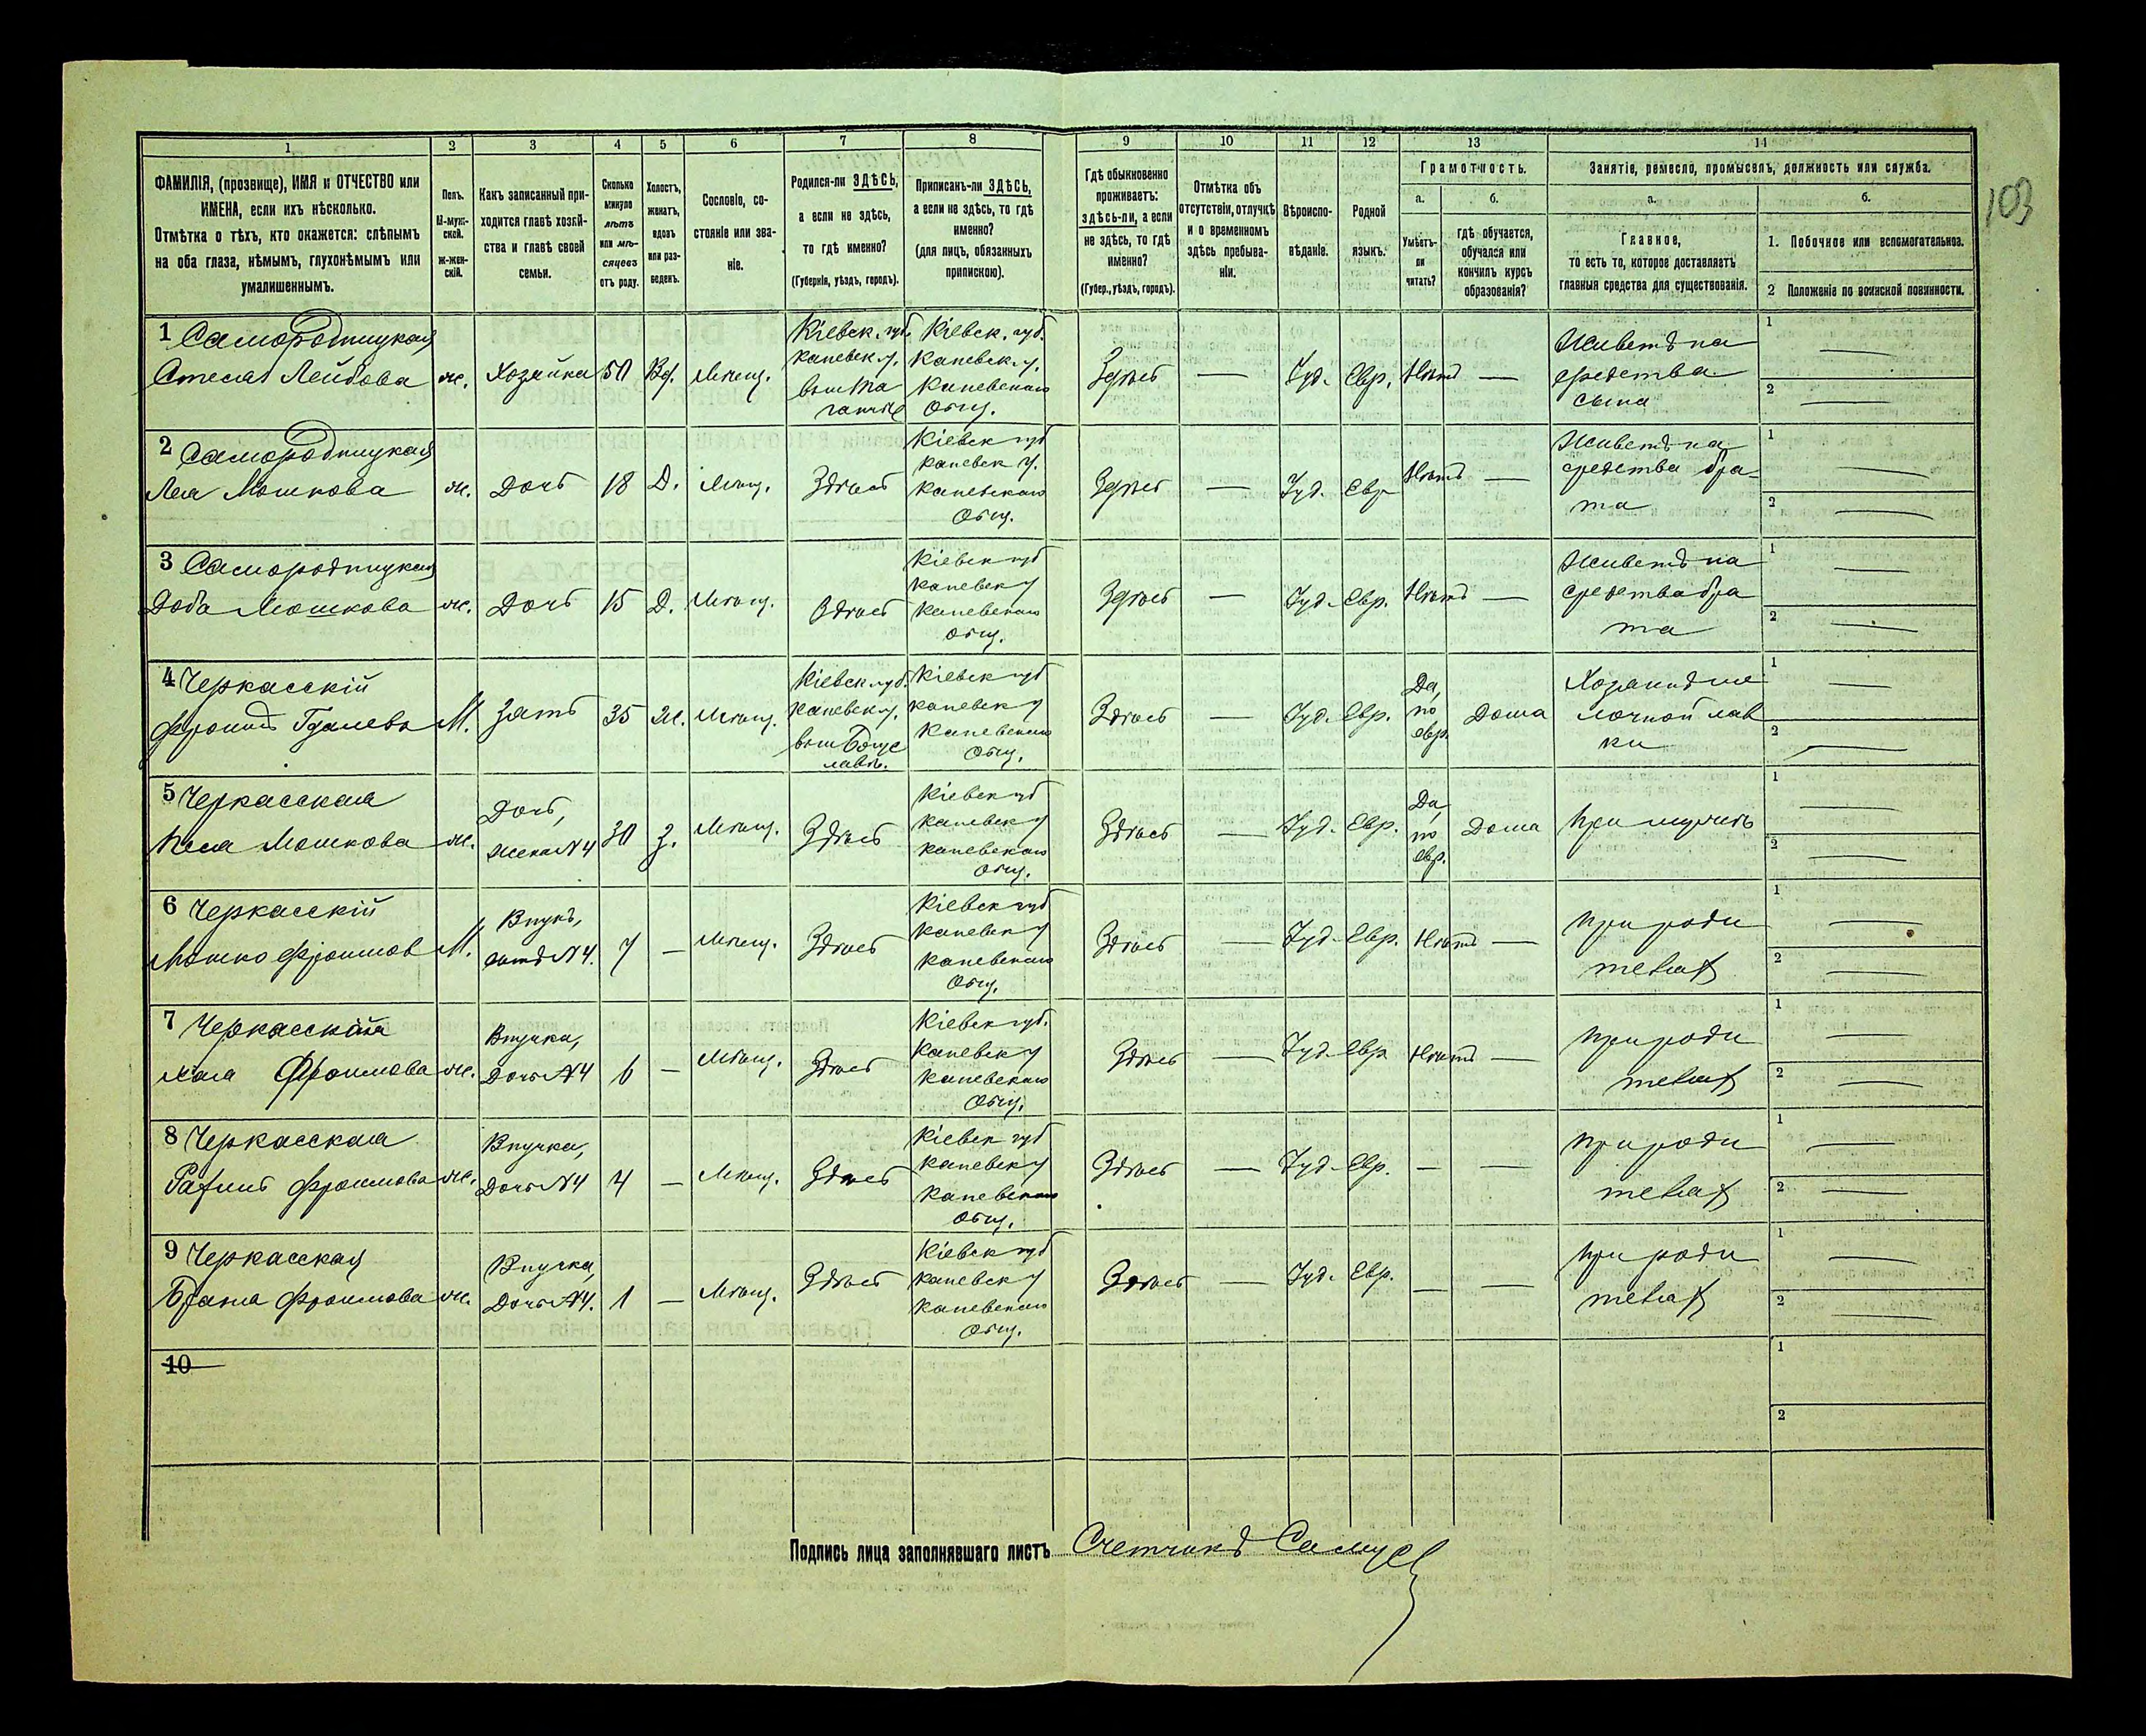 103
1 2 3 4 5 6 7 8 9 10 11 12 13 14
ФАМИЛІЯ, (прозвище), ИМЯ и ОТЧЕСТВО или
ИМЕНА, если ихъ нѣсколько.
Отмѣтка о тѣхъ, кто окажется: слѣпымъ
на оба глаза, нѣмымъ, глухонѣмымъ или
умалишеннымъ.
Полъ.
М-муж-
ской.
ж-жен-
скій.
Какъ записанный при-
ходится главѣ хозяй-
ства и главѣ своей
семьи.
Сколько
минуло
лѣтъ
или мѣ-
сяцевъ
отъ роду.
Холостъ,
женатъ,
вдовъ
или раз-
веденъ.
Сословіе, со-
стояніе или зва-
ніе.
Родился-ли ЗДѢСЬ,
а если не здѣсь,
то гдѣ именно?
(Губернія, уѣздъ, городъ).
Приписанъ-ли ЗДѢСЬ,
а если не здѣсь, то гдѣ
именно?
(для лицъ, обязанныхъ
припискою).
Гдѣ обыкновенно
проживаетъ:
здѣсь-ли, а если
не здѣсь, то гдѣ
именно?
(Губер., уѣздъ, городъ).
Отмѣтка объ
отсутствіи, отлучкѣ
и о временномъ
здѣсь пребыва-
ніи.
Вѣроиспо-
вѣданіе.
Родной
языкъ.
Грамотность.
а.
Умѣетъ-
ли
читать?
б.
гдѣ обучается,
обучался или
кончилъ курсъ
образованія?
Занятіе, ремесло, промыселъ, должность или служба.
а.
Главное,
то есть то, которое доставляетъ
главныя средства для существованія.
б.
1. Побочное или вспомогательное.
2 Положеніе по воинской повинности.
1 Самородницкая
Лейбова
ж.
Хозяйка
50
Вд.
Мѣщ.
Кіевск. губ.
Каневск. у.
Кіевск. губ.
Каневск. у.
Каневскаго
Общ.
Здѣсь
—
Іуд.
Евр.
Нѣтъ
—
Живетъ на
средства
сына
1
2
2 Самородницкая
Лея Мошкова
ж.
Дочь
18
Д.
Мѣщ.
Здѣсь
Кіевск губ
Каневск у.
Каневскаго
Общ.
Здѣсь
—
Іуд.
Евр
Нѣтъ
—
Живетъ на
средства бра-
та
1
2
3 Самородницкая
Доба Мошкова
ж.
Дочь
15
Д.
Мѣщ.
Здѣсь
Кіевск губ
Каневск у
Каневскаго
Общ.
Здѣсь
—
Іуд.
Евр.
Нѣтъ
—
Живетъ на
средства бра
та
1
2
4 Черкасскій
Фроимъ Гдалевъ
М.
Зять
35
Ж.
Мѣщ.
Кіевск губ.
Каневск у.
вым Богус
лавѣ.
Кіевск губ
Каневск у
Каневскаго
Общ.
Здѣсь
—
Іуд.
Евр.
Да,
по
евр.
Дома
Хозяинъ ме
лочной лав
ки
1
2
5 Черкасская
Песя Мошкова
ж.
Дочь,
жена №4
30
З.
Мѣщ.
Здѣсь
Кіевск губ
Каневск у
Каневскаго
Общ.
Здѣсь
—
Іуд.
Евр.
Да,
по
евр.
Дома
При мужѣ
1
2
6 Черкасскій
Мошко Фроимов
М.
Внукъ,
сынъ №4.
7
—
Мѣщ.
Здѣсь
Кіевск губ
Каневск у
Каневскаго
Общ.
Здѣсь
—
Іуд.
Евр.
Нѣтъ
—
При роди
теляхъ
1
2
7 Черкасская
Фроимова
ж.
Внучка,
Дочь №4
6
—
Мѣщ.
Здѣсь
Кіевск губ.
Каневск у
Каневскаго
Общ.
Здѣсь
—
Іуд.
Евр
Нѣтъ
—
При роди
теляхъ
1
2
8 Черкасская
Фроимова
ж.
Внучка,
Дочь №4
4
—
Мѣщ.
Здѣсь
Кіевск губ
Каневск у
Каневскаго
Общ.
Здѣсь
—
Іуд.
Евр.
—
—
При роди
теляхъ
1
2
9 Черкасская
Фроимова
ж.
Внучка,
Дочь №4.
1
—
Мѣщ.
Здѣсь
Кіевск губ
Каневск у
Каневскаго
Общ.
Здѣсь
—
Іуд.
Евр.
—
—
При роди
теляхъ
1
2
10
1
2
Подпись лица заполнявшаго листъ Счетчикъ